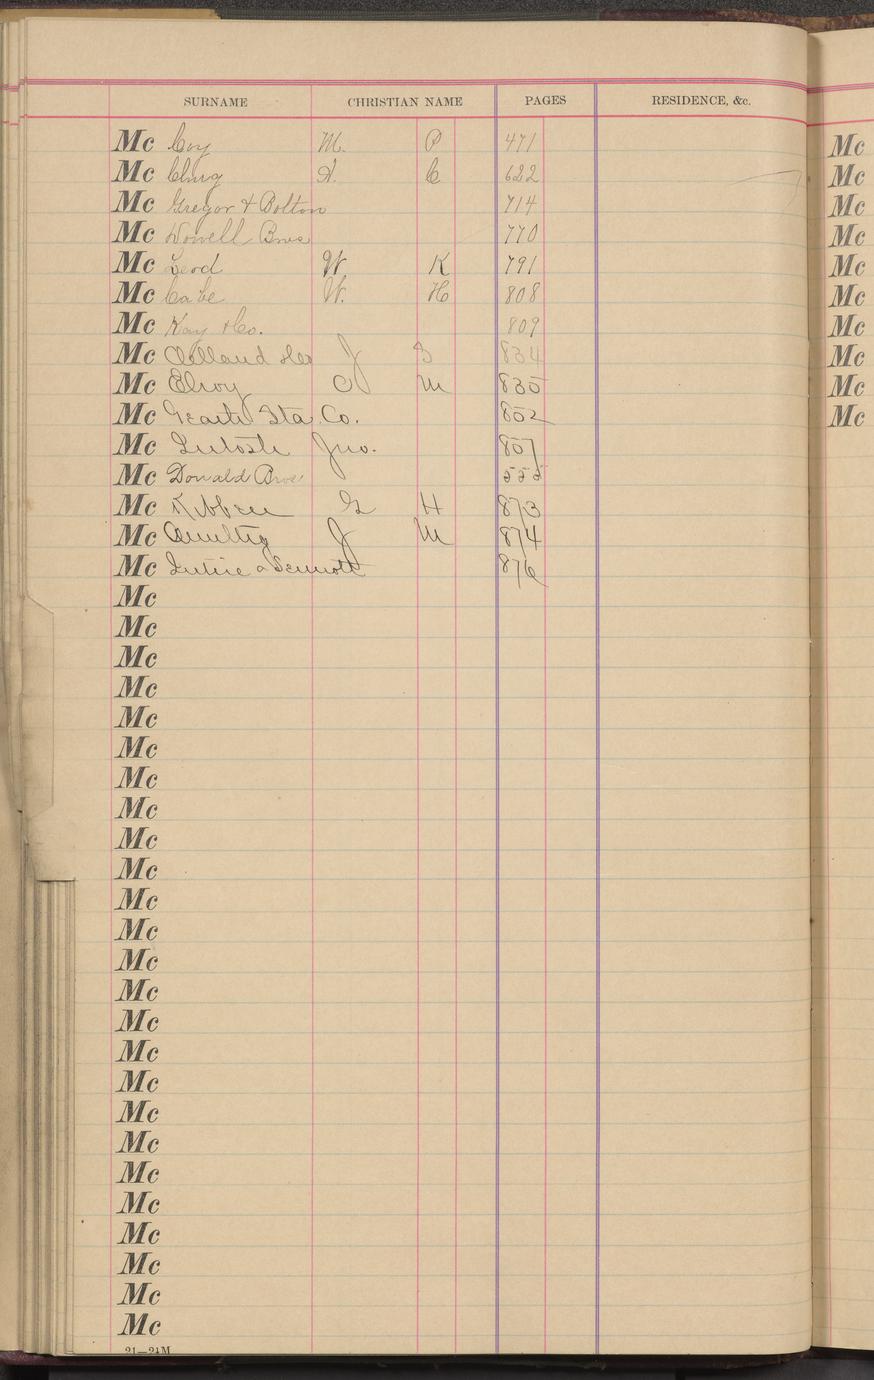 SURNAME CHRISTIAN NAME PAGES RESIDENCE, &c.
Mc Coy M. P 471
Mc Clung A. C 622
Mc Gregor & Bolton 714
Mc Dowell Bros 770
Mc Leod W. K 791
Mc Cabe W. H 808
Mc Kay & Co. 809
Mc Clelland J 834
Mc Elroy C M 835
Mc Co. 852
Mc Intosh Jno. 857
Mc Donald Bros 555
Mc Kibben G H 873
Mc J M 874
Mc Intire & 876
Mc
Mc
Mc
Mc
Mc
Mc
Mc
Mc
Mc
Mc
Mc
Mc
Mc
Mc
Mc
Mc
Mc
Mc
Mc
Mc
Mc
Mc
Mc
Mc
Mc
21—24M
Mc
Mc
Mc
Mc
Mc
Mc
Mc
Mc
Mc
Mc